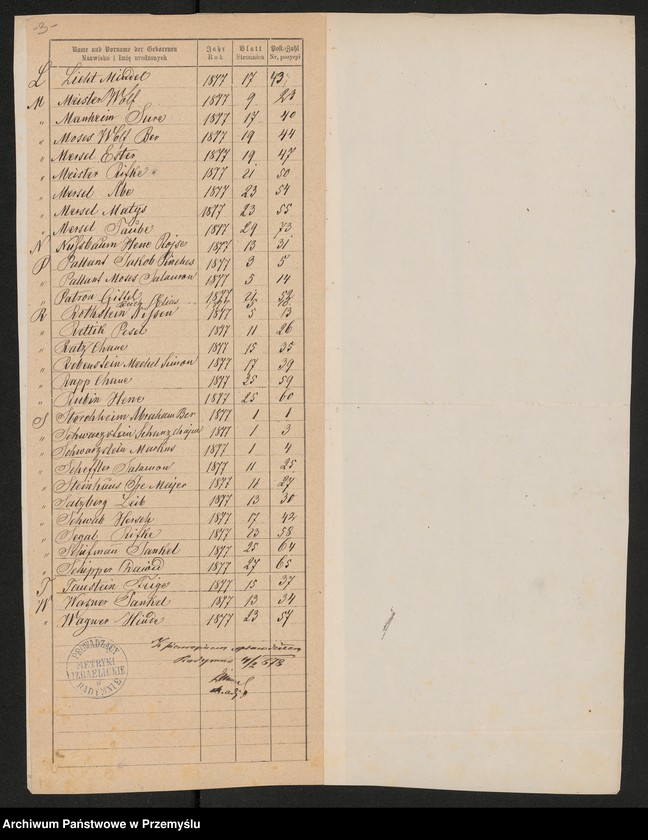 -3-
Name und Vorname der Geborenen Jahr Blatt Post-Zahl
Nazwisko i Imię urodzonych Rok Stronnica Nr. pozycyi
L Licht Mindel 1877 17 43
M Meister Wolf 1877 9 23
" Manheim Sure 1877 17 40
" Moses Wolf Ber 1877 19 44
" Mersel Ester 1877 19 47
" Meister Rifke 1877 21 50
" Mersel Abe 1877 23 54
" Mersel Matys 1877 23 55
" Mersel Taube 1877 29 73
N Nussbaum Hene Rojse 1877 13 31
P Pallant Jakob Pinches 1877 3 5
" Pallant Moses Salamon 1877 5 14
" Patron Gittel 1877 21 52
R Rothstein Nissen 1877 5 13
" Rettik Pesel 1877 11 26
" Ratz Chane 1877 15 35
" Rubenstein Mechel Simon 1877 17 39
" Rapp Chane 1877 25 59
" Rubin Hene 1877 25 60
S Storchheim Abraham Ber 1877 1 1
" Schwarzstein 1877 1 3
" Schwarzstein Markus 1877 1 4
" Scheffler Salamon 1877 11 25
" Steinhaus Majer 1877 11 27
" Salzberg Leib 1877 13 30
" Schwab Hersch 1877 17 42
" Segal Rifke 1877 23 58
" Schifman Jankel 1877 25 64
" Schipper Dawid 1877 27 65
T Feige 1877 15 37
W Wagner Jankel 1877 13 34
" Wagner Hinde 1877 23 57
Z pierwopisem sprawdzono
Radymno 4/2 878
PROWADZĄCY
METRYKI
IZRAELICKIE
w
RADYMNIE
Archiwum Państwowe w Przemyślu